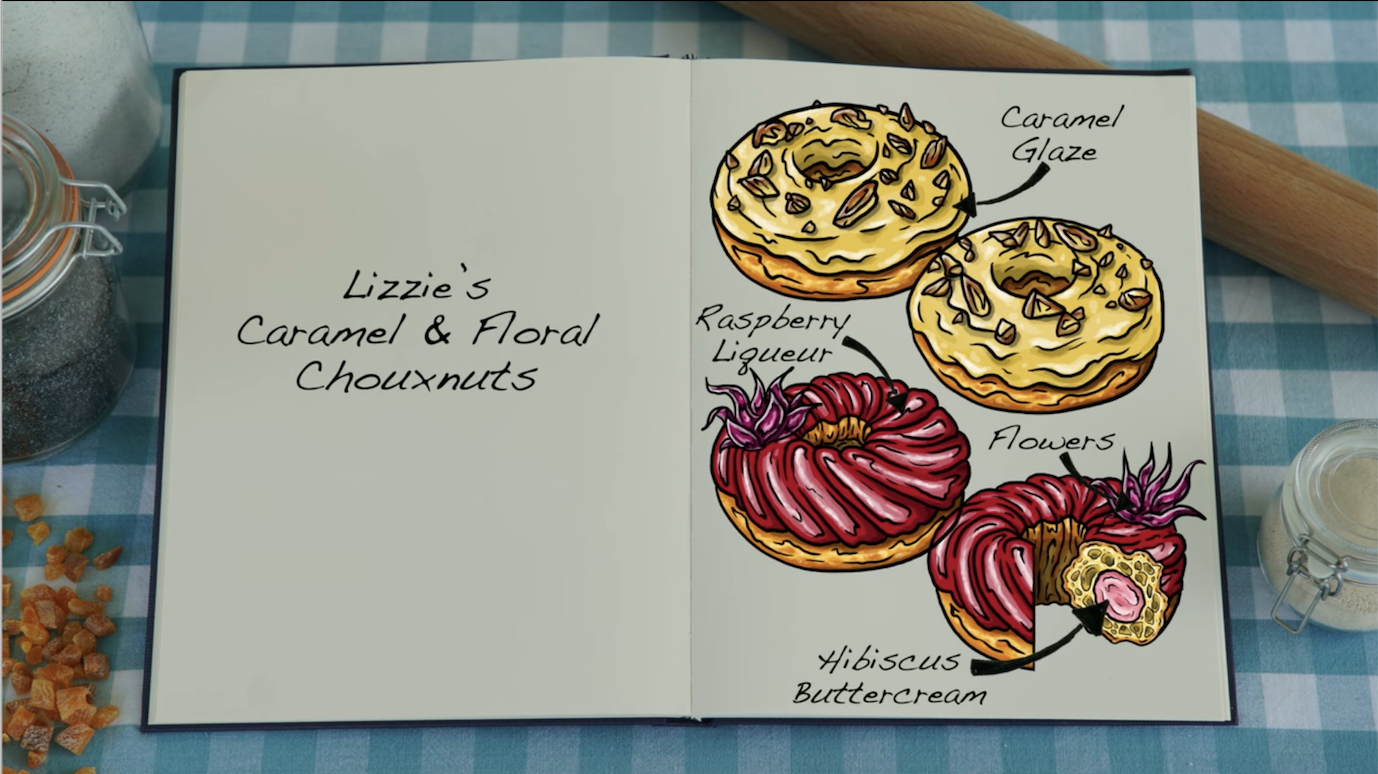 Lizzie's
Caramel & Floral
Chouxnuts
Caramel
Glaze
Raspberry
Liqueur
Flowers
Hibiscus
Buttercream